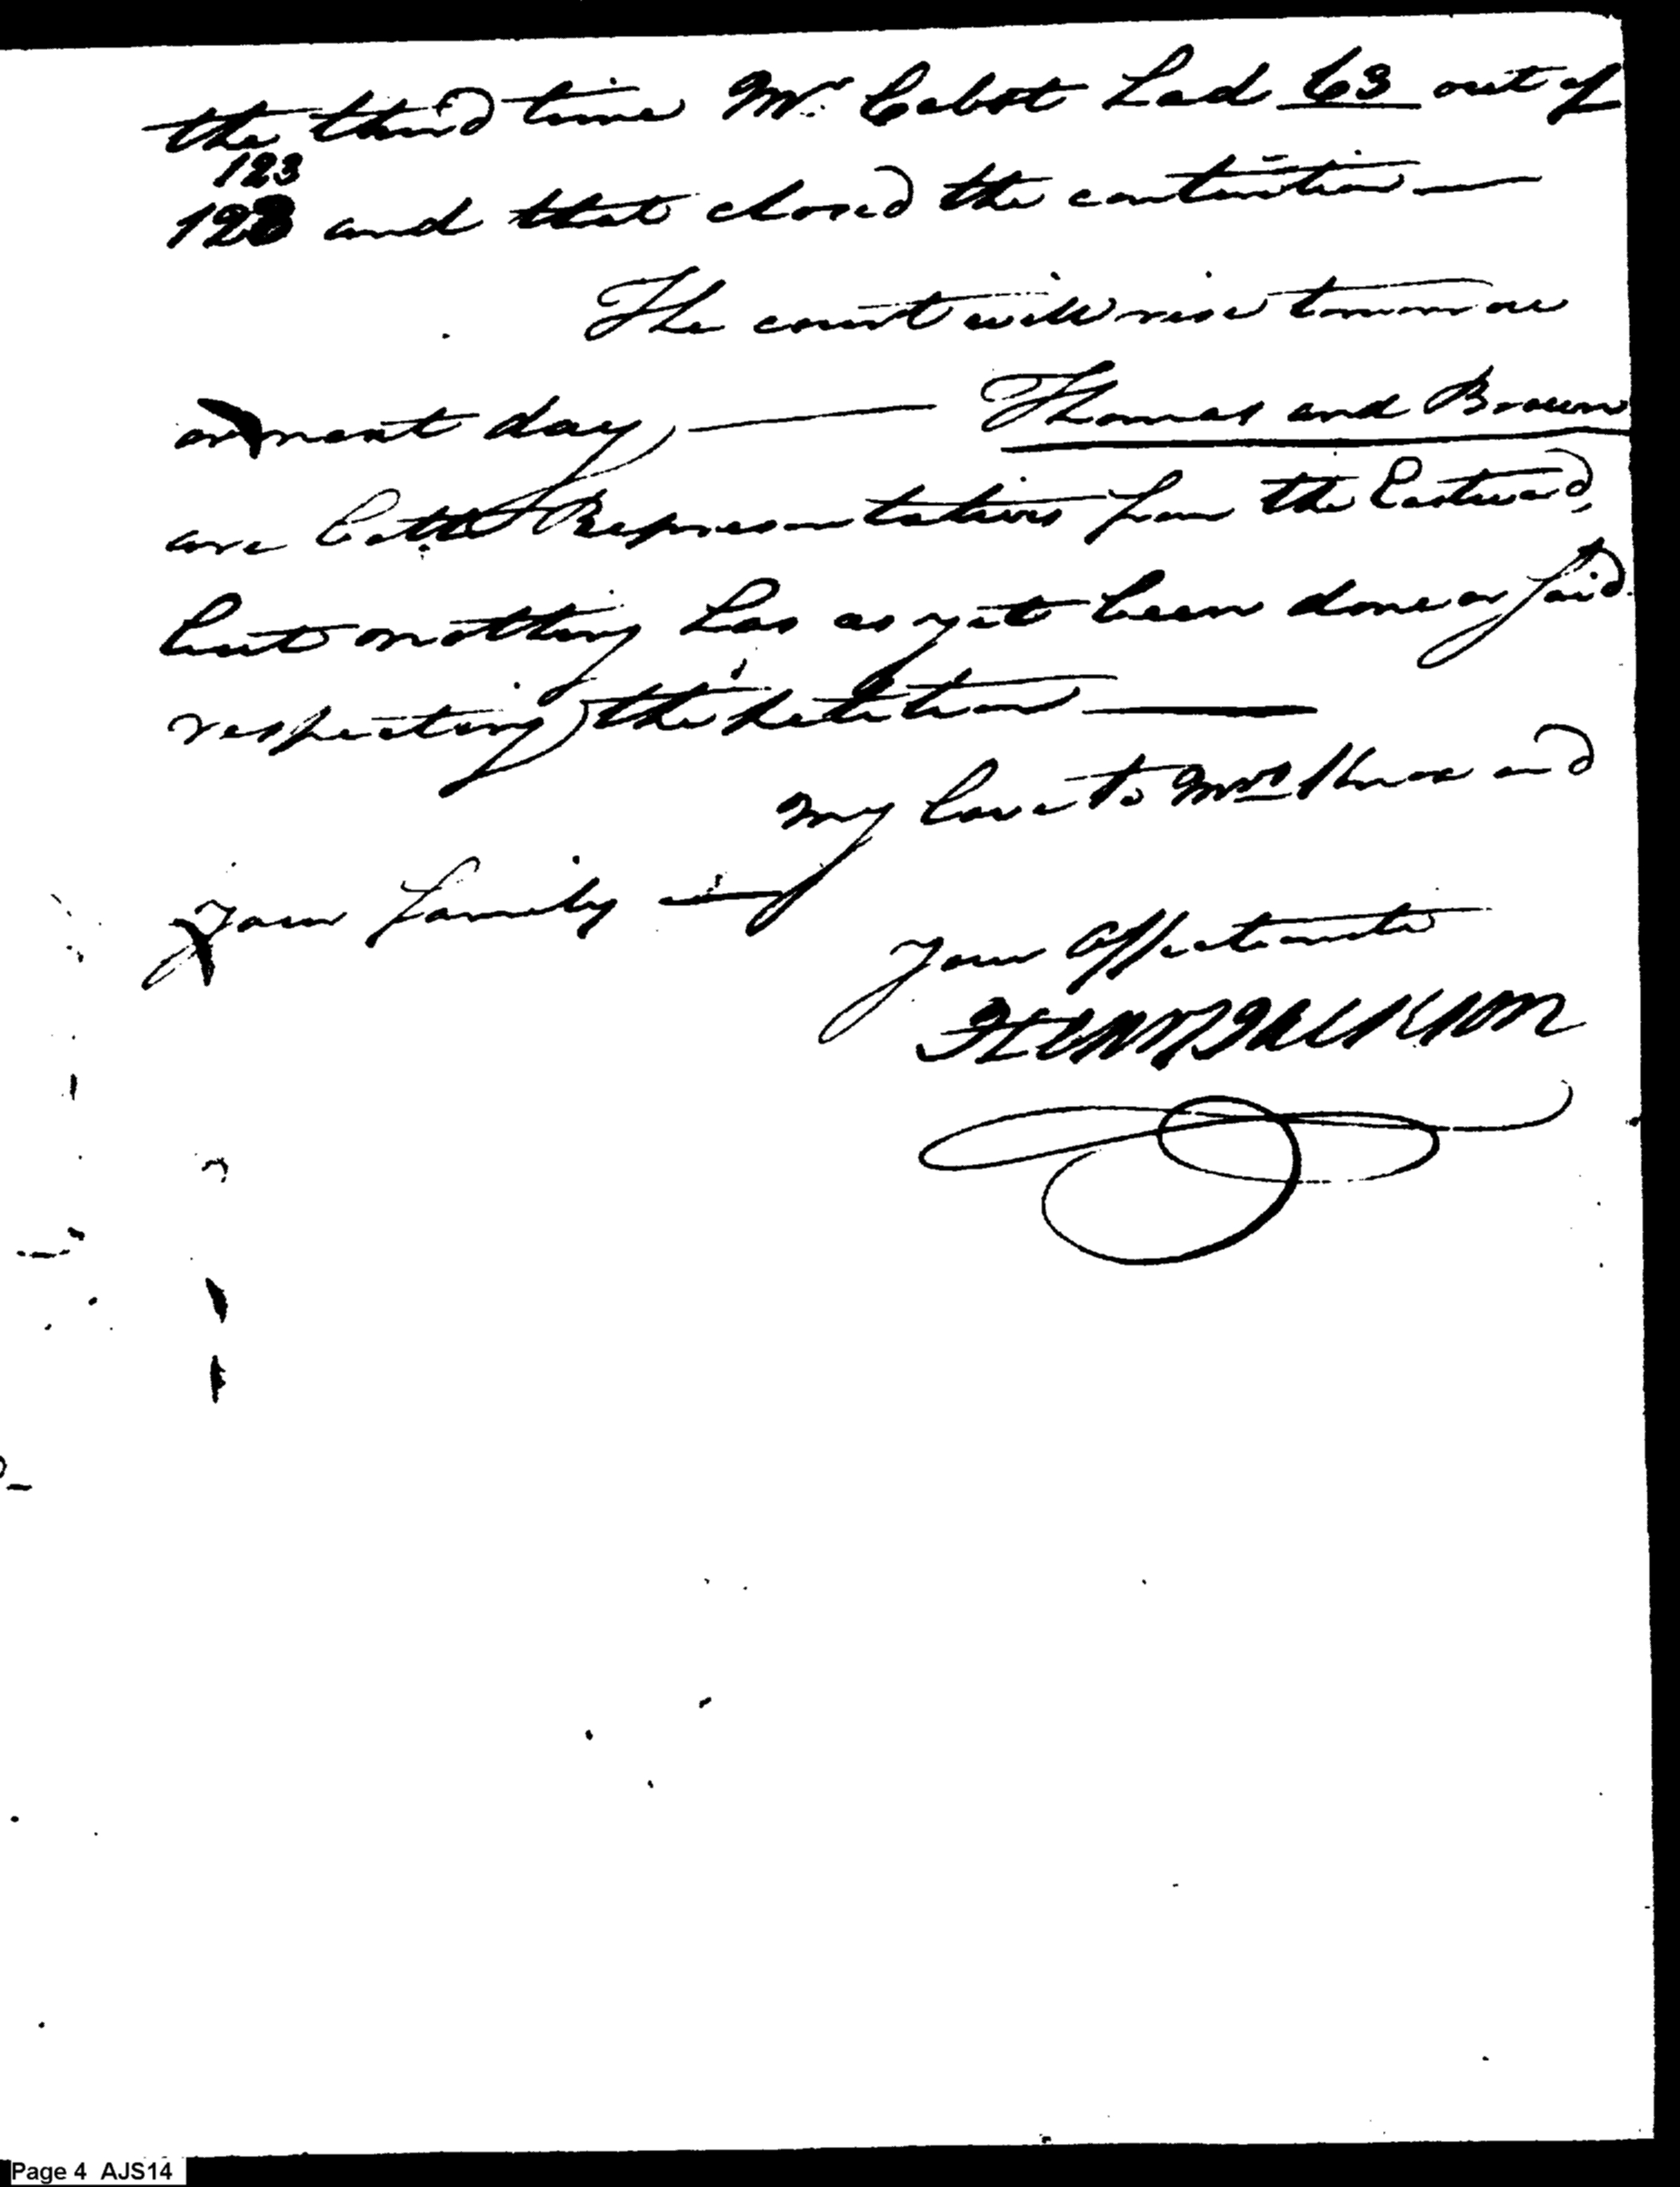 the third time Mr. Cabot had 63 out of
123
128 and that closed the contention —
The court will rise tomorrow
or next day — Thomas and Brown
are both Representatives from the Eastward,
but nothing has as yet been done or said
respecting the petition —
My love to Mrs Knox and
your family —
Your Affectionate
HENRY JACKSON
Page 4 AJS14